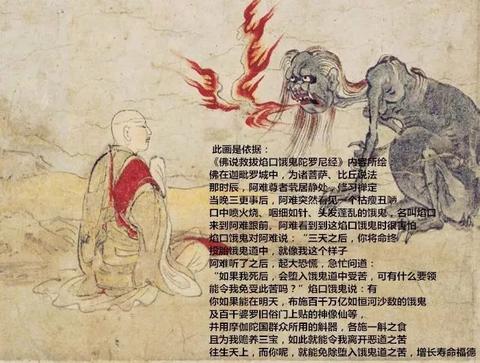 此画是依据：
《佛说救拔焰口饿鬼陀罗尼经》内容所绘
佛在迦毗罗城中，为诸菩萨、比丘说法
那时辰，阿难尊者茕居静处，修习禅定
当晚三更事后，阿难突然看见一个枯瘦丑陋
口中喷火烧、咽细如针、头发蓬乱的饿鬼，名叫焰口
来到阿难跟前。阿难看到到这焰口饿鬼时很害怕
焰口饿鬼对阿难说：“三天之后，你将命终
投胎饿鬼道中，就像我这个样子
阿难听了之后，起大恐慌，急忙问道：
“如果我死后，会堕入饿鬼道中受苦，可有什么要领
能令我免受此苦吗？”焰口饿鬼说：有
你如果能在明天，布施百千万亿如恒河沙数的饿鬼
及百千婆罗旧俗门上贴的神像仙等，
并用摩伽陀国群众所用的斛器，各施一斛之食
且为我跪养三宝，如此就能令我离开恶道之苦
往生天上，而你呢，就能免除堕入饿鬼道之苦，增长寿命福德